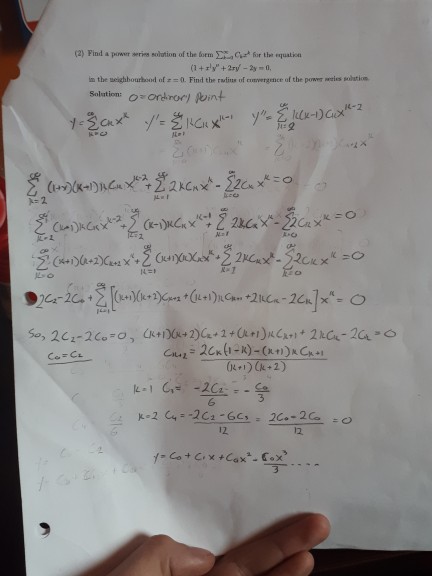 (2) Find a power series solution of the form ∑_{k=0}^∞ C_k x^k for the equation
(1 + x)y'' + 2xy' − 2y = 0,
in the neighbourhood of x = 0. Find the radius of convergence of the power series solution.
Solution: 0=ordinary point
y = ∑_{k=0}^∞ C_k x^k y' = ∑_{k=1}^∞ k C_k x^{k-1} y'' = ∑_{k=2}^∞ k(k-1) C_k x^{k-2}
∑_{k=2}^∞ (1+x)(k-1)k C_k x^{k-2} + ∑_{k=1}^∞ 2k C_k x^k - ∑_{k=0}^∞ 2C_k x^k = 0
∑_{k=2}^∞ (k-1)k C_k x^{k-2} + ∑_{k=2}^∞ (k-1)k C_k x^{k-1} + ∑_{k=1}^∞ 2k C_k x^k - ∑_{k=0}^∞ 2C_k x^k = 0
∑_{k=0}^∞ (k+1)(k+2) C_{k+2} x^k + ∑_{k=1}^∞ (k+1)k C_{k+1} x^k + ∑_{k=1}^∞ 2k C_k x^k - ∑_{k=0}^∞ 2C_k x^k = 0
2C_2 - 2C_0 + ∑_{k=1}^∞ [(k+1)(k+2) C_{k+2} + (k+1)k C_{k+1} + 2k C_k - 2C_k] x^k = 0
So, 2C_2 - 2C_0 = 0, (k+1)(k+2) C_{k+2} + (k+1)k C_{k+1} + 2k C_k - 2C_k = 0
C_0 = C_2 C_{k+2} = \frac{2C_k(1-k) - (k+1)k C_{k+1}}{(k+1)(k+2)}
k=1 C_3 = \frac{-2C_2}{6} = -\frac{C_0}{3}
k=2 C_4 = \frac{-2C_2 - 6C_3}{12} = \frac{2C_0 - 2C_0}{12} = 0
y = C_0 + C_1 x + C_0 x^2 - \frac{C_0 x^3}{3} ....